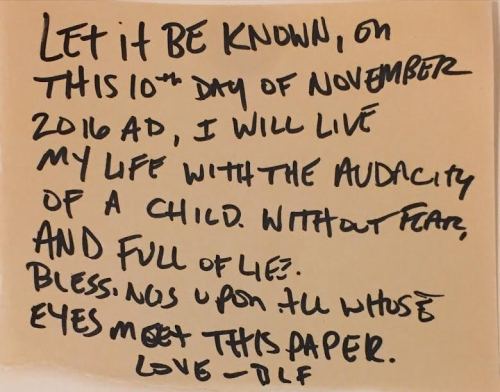 LET it BE KNOWN, ON
THIS 10th DAY OF NOVEMBER
2016 AD, I WILL LIVE
MY LIFE WITH THE AUDACITY
OF A CHILD. WITHOUT FEAR,
AND FULL OF LIFE.
BLESSINGS UPON ALL WHOSE
EYES MEET THIS PAPER.
LOVE - DLF